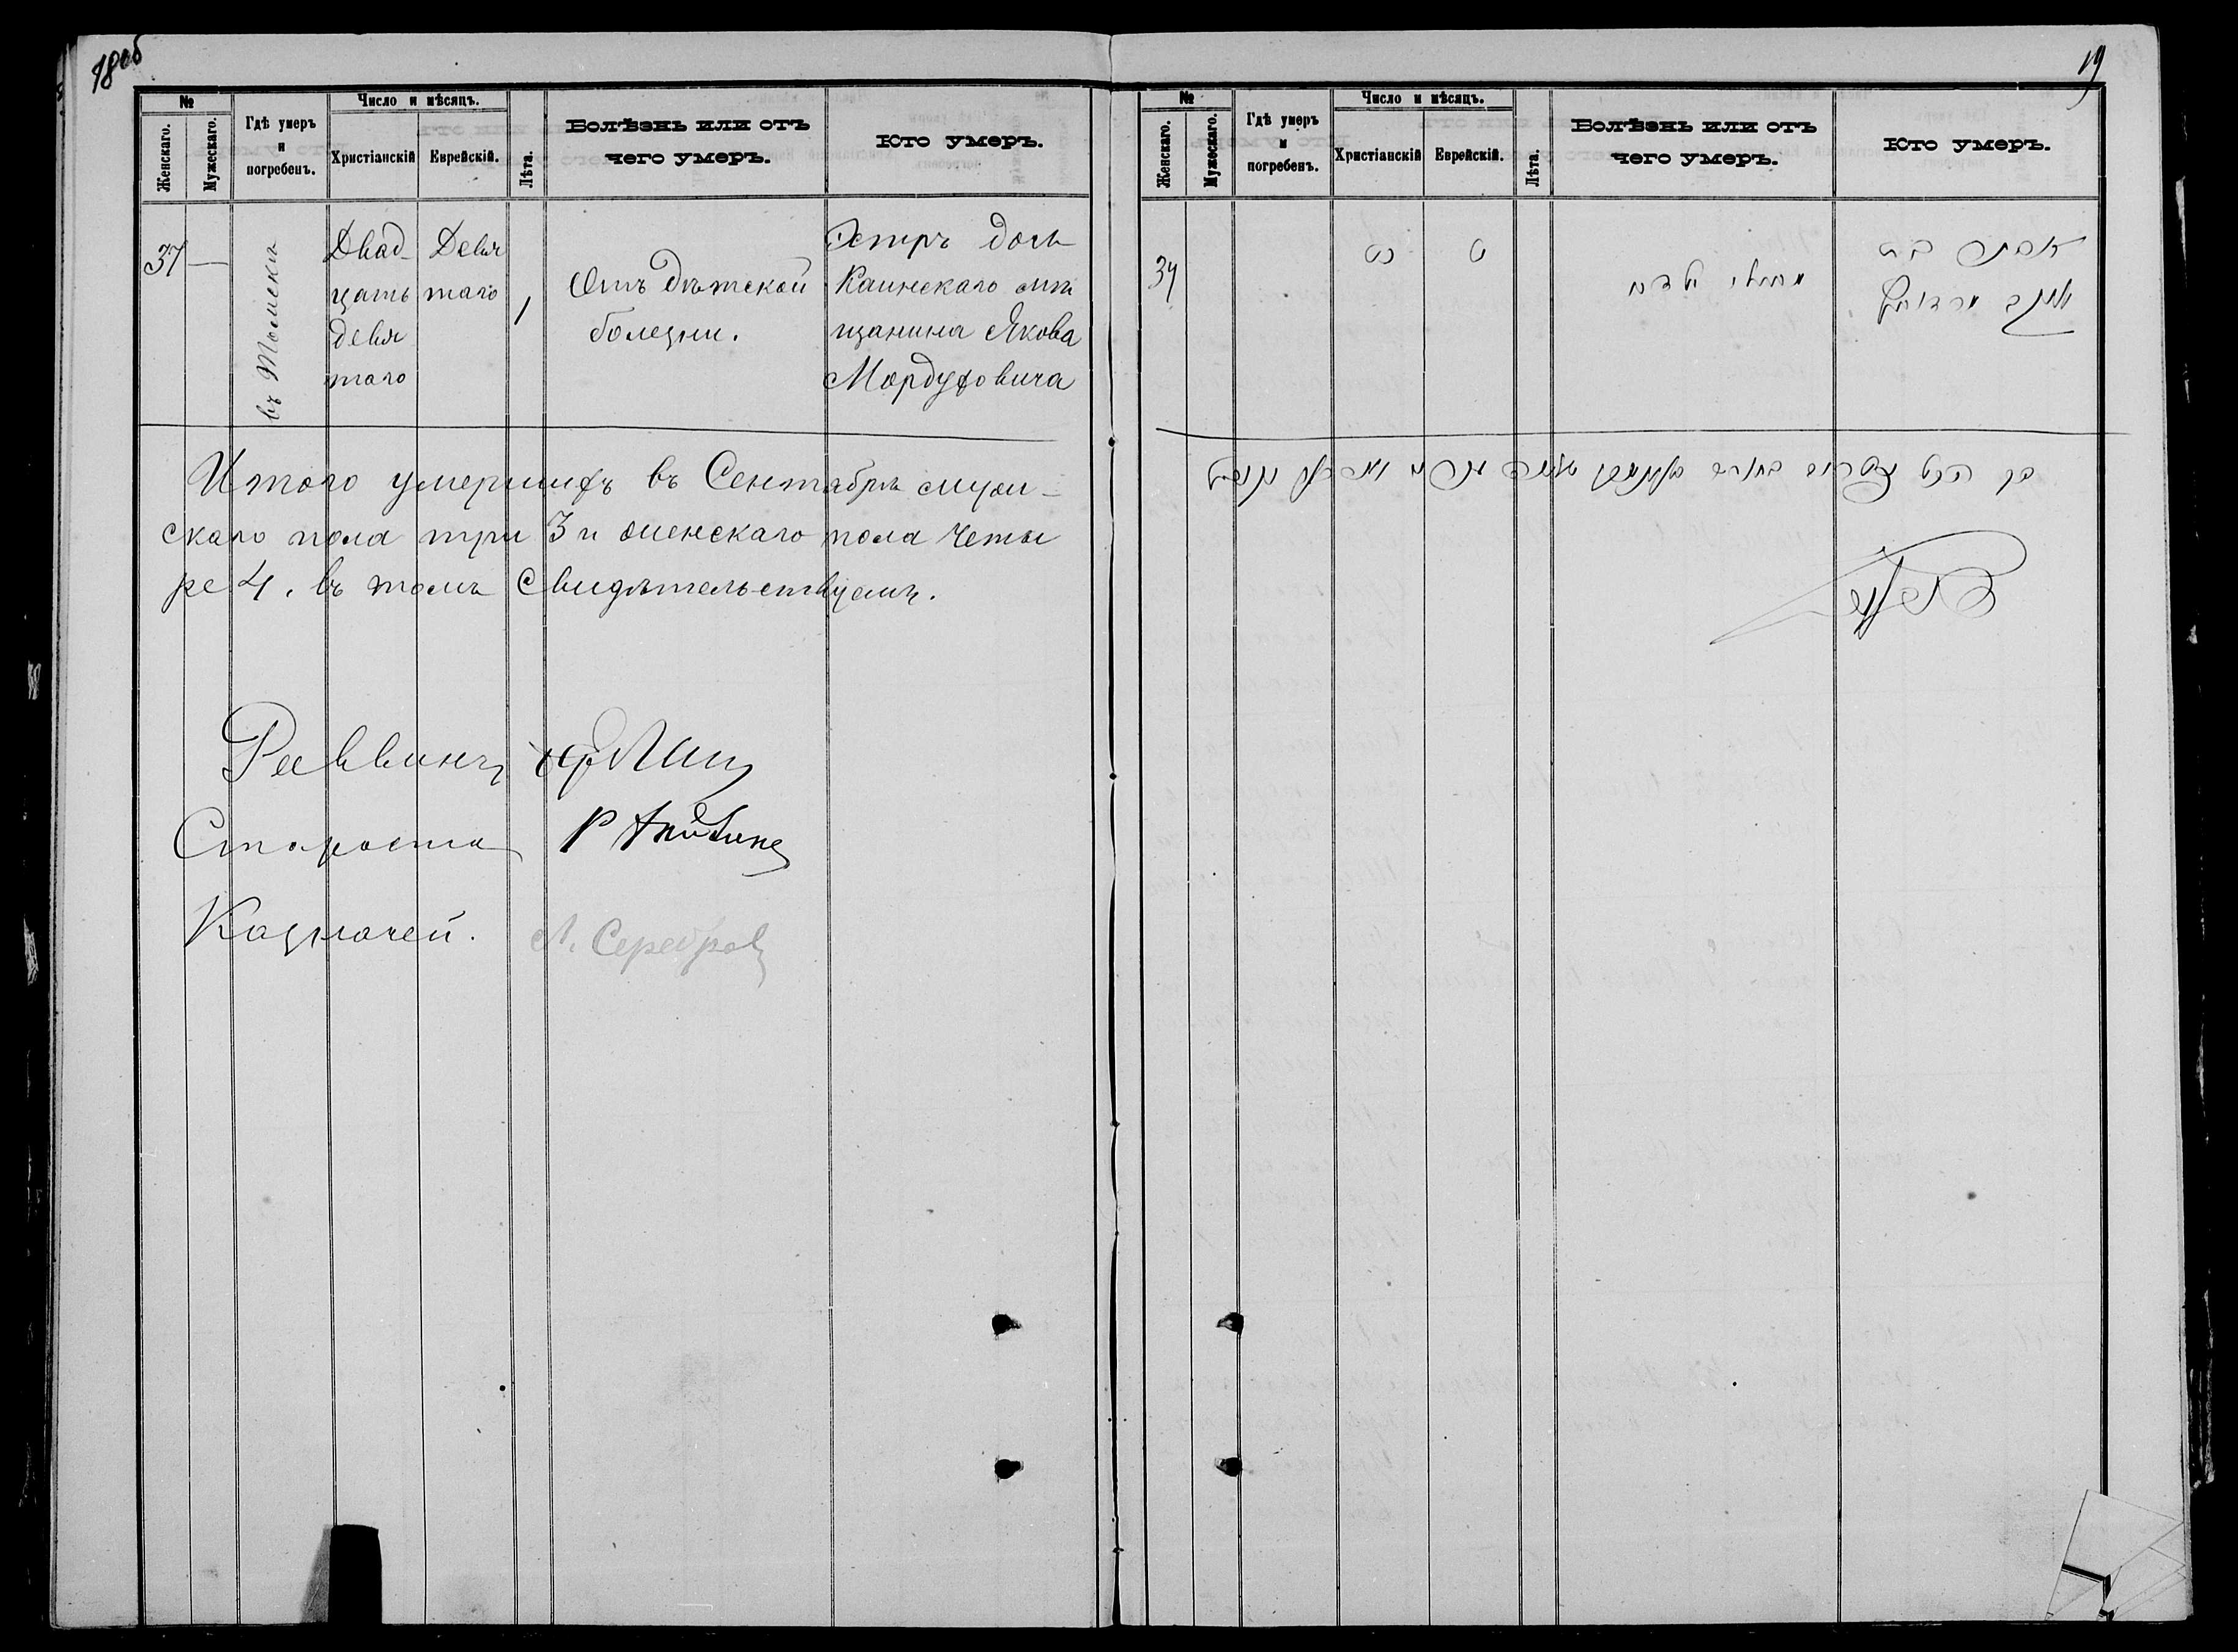 18об
№
Женскаго.
Мужескаго.
Гдѣ умеръ
и
погребенъ.
Число и мѣсяцъ.
Христіанскій
Еврейскій.
Лѣта.
Болѣзнь или отъ
чего умеръ.
Кто умеръ.
37 —
въ Томскѣ
Двад-
цать
девя
таго
Девя
таго
1
Отъ дѣтской
болезни.
Эстръ дочь
Каинскаго мѣ
щанина Якова
Мордуховича
Итого умершихъ въ Сентябрѣ муж-
скаго пола три 3 и женскаго пола четы
ре 4. въ томъ свидѣтельствуемъ.
Раввинъ
Староста
Казначей. Серебров
19
№
Женскаго.
Мужескаго.
Гдѣ умеръ
и
погребенъ.
Число и мѣсяцъ.
Христіанскій
Еврейскій.
Лѣта.
Болѣзнь или отъ
чего умеръ.
Кто умеръ.
37
כט
ט
אסתר בת
יעקב מרדוחוץ